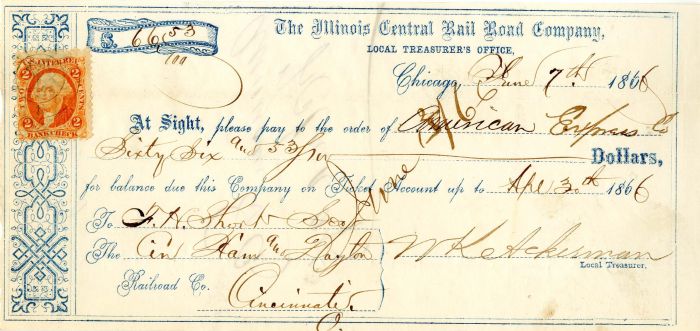 The Illinois Central Rail Road Company,
LOCAL TREASURER'S OFFICE,
$ 66 53/100
Chicago, June 7th 1866
TWO CENTS
2 2
BANK CHECK
At Sight, please pay to the order of American Express Co
Sixty Six and 53/100 Dollars,
for balance due this Company on Ticket Account up to Apl 30th 1866
June 16
To F. H. Short
The Cin Ham and Dayton
Railroad Co.
W K Ackerman
Local Treasurer.
Cincinnati,
O.